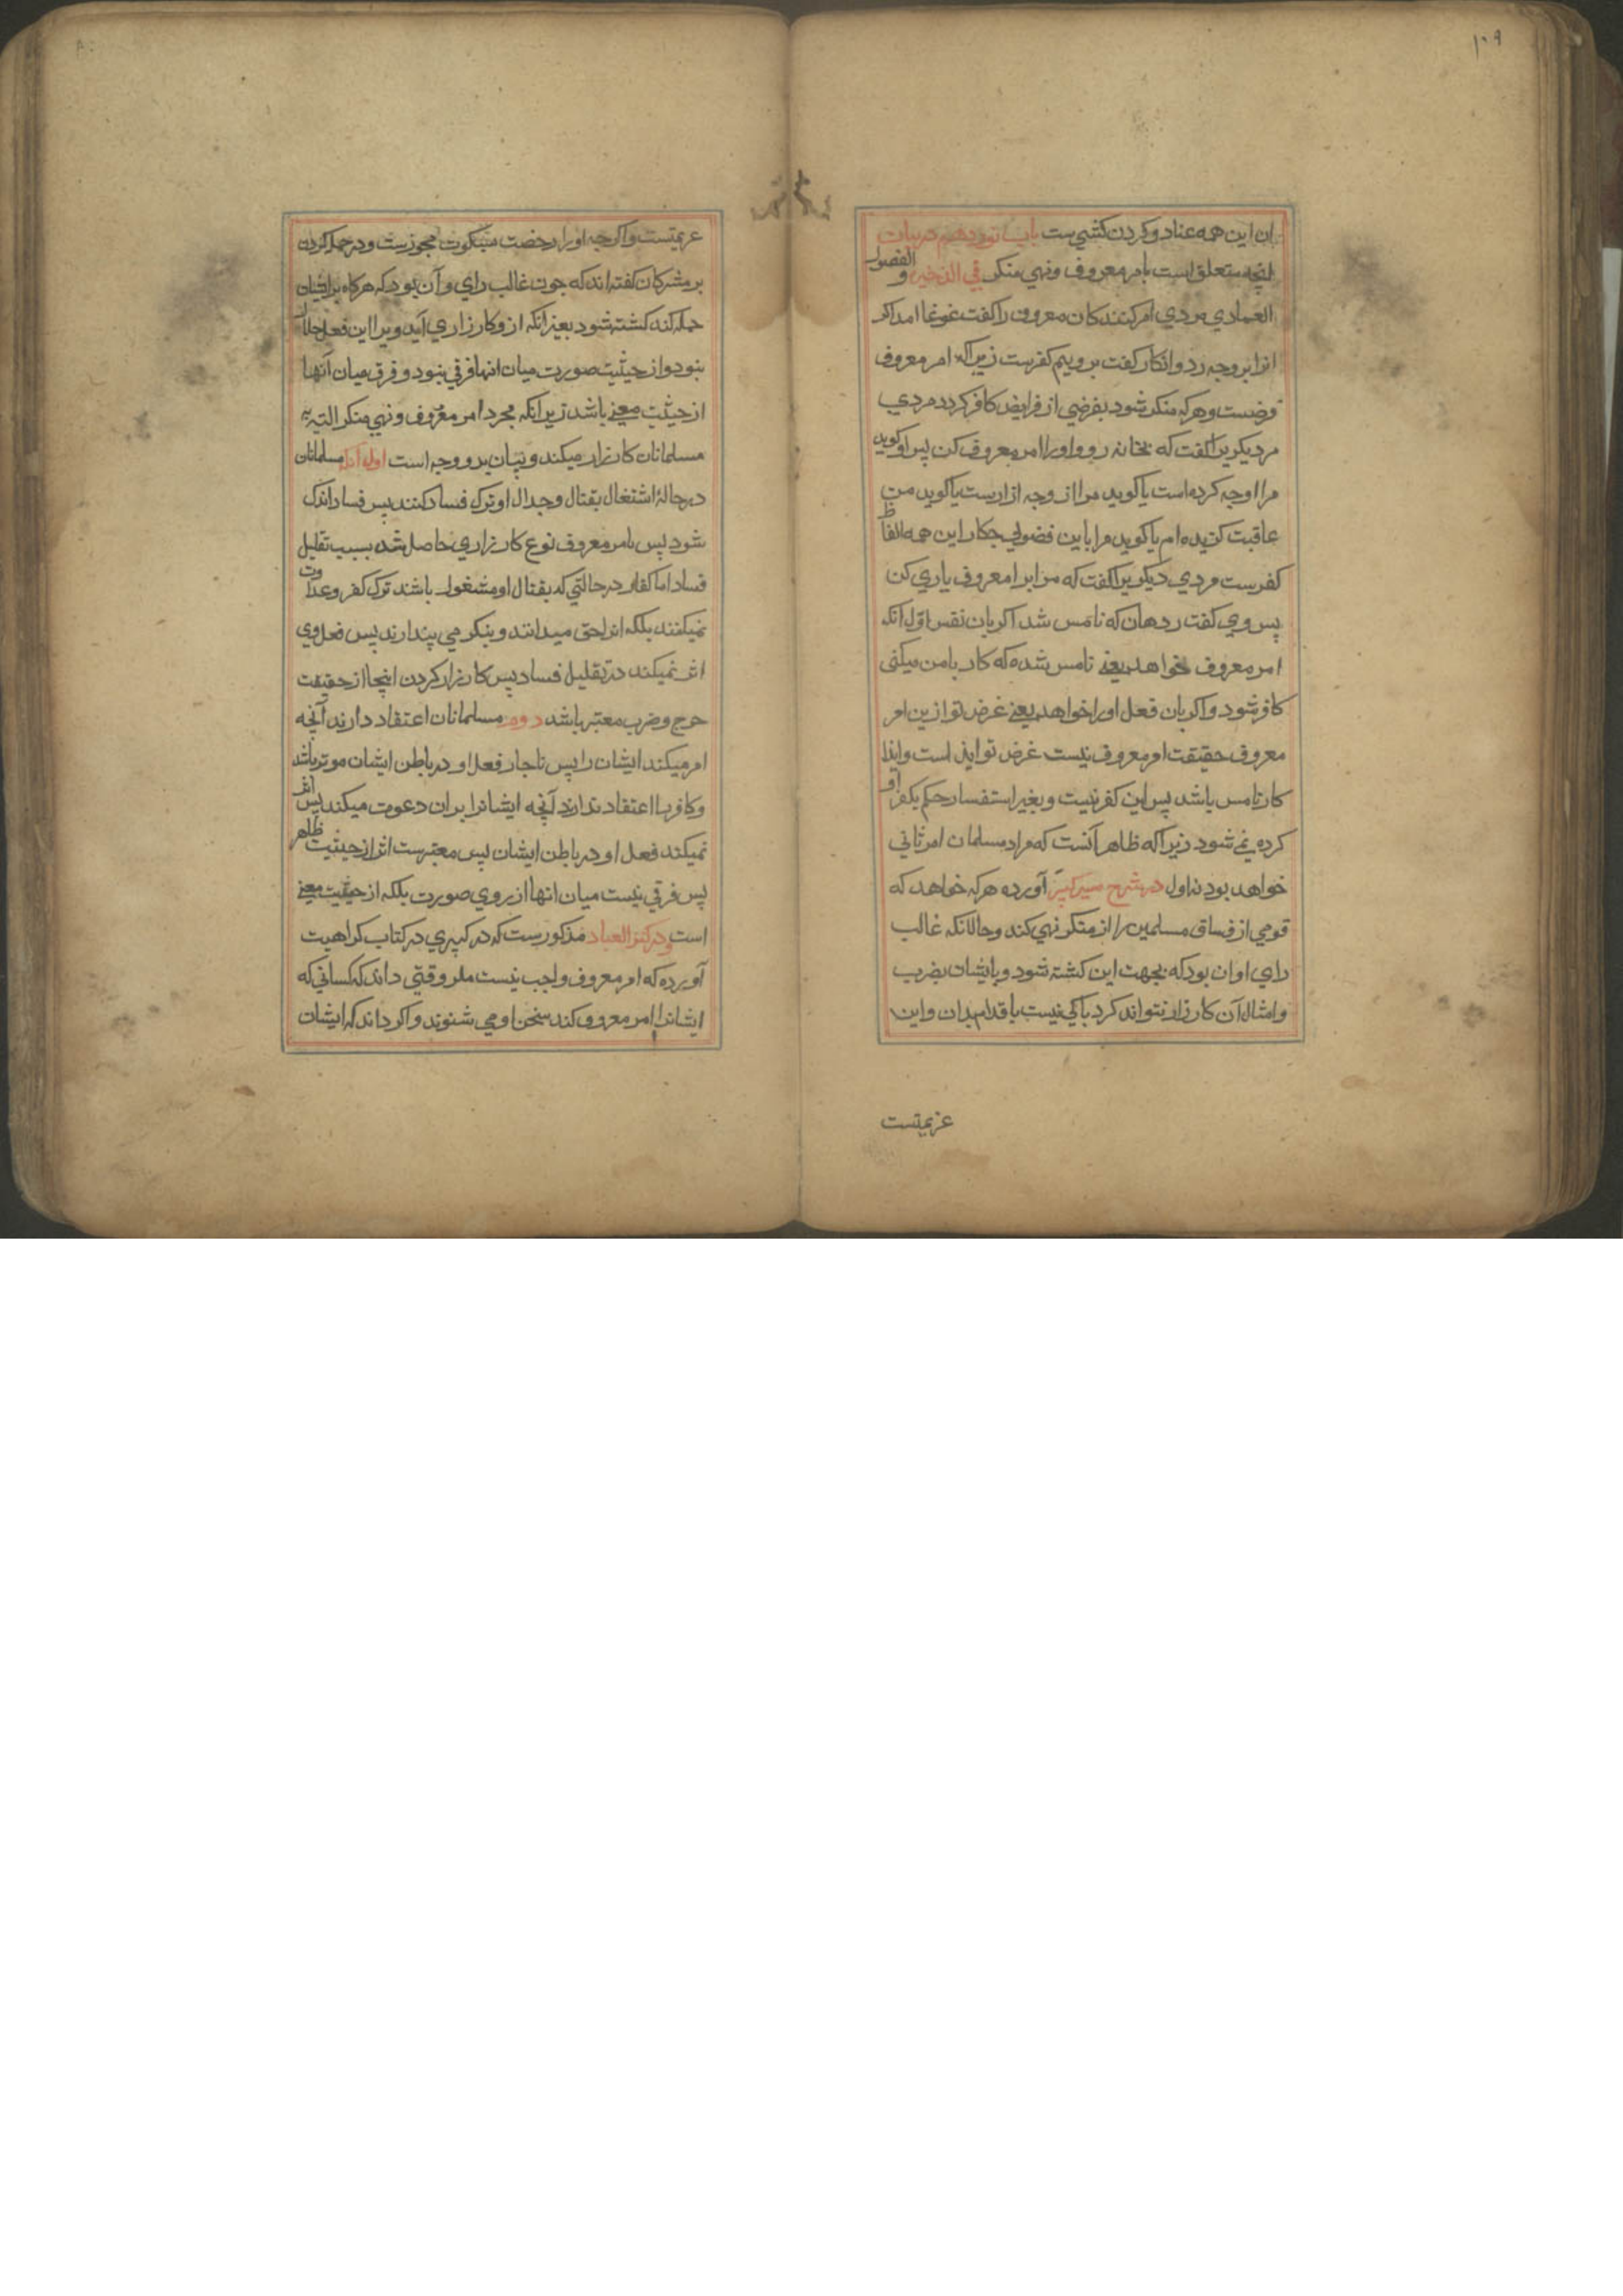 ۱۰۹
ان این همه عناد و کردن کشی ست باب نوزدهم در بیان
انچه متعلق است بامر معروف و نهی منکر فی الذخیره و الفصول
العمادی مردی امر کنندکان معروف را کفت غوغا امد اکر
انرا بر وجه رد و انکار کفت بر ویم کفرست زیراکه امر معروف
فرضست و هرکه منکر شود بفرضی از فرایض کافر کردد مردی
مر دیکریرا کفت که بخانه رو و او را امر معروف کن پس او کوید
مرا او چه کرده است یا کوید مرا از وجه ازارست یا کوید من
عاقبت کزیده ام یا کوید مرا باین فضولی جکار این همه الفاظ
کفرست مردی دیکریرا کفت که مرا برا معروف یاری کن
پس وی کفت ردهان که نامس شد اکر بان نفس اول انکه
امر معروف خواهد یعنے نامس شده که کار با من میکنی
کافر شود و اکر بان فعل او را خواهد یعنے غرض تو ازین امر
معروف حقیقت امر معروف نیست غرض تو ایذا است و ایذا
کار نامس باشد پس این کفر نیست و بغیر استفسار حکم بکفر او
کرده نمی شود زیراکه ظاهر آنست که مراد مسلمان امر ثانی
خواهد بود نه اول در شرح سیر کبیر آورده هرکه خواهد که
قومی از فساق مسلمین را از منکر نهی کند و حالانکه غالب
رای او ان بود که بجهت این کشته شود و بایشان بضرب
و امثال آن کارزار نتواند کرد باکی نیست باقدام بدان و این
عزیمتست
عزیمتست و اکرچه او را رخصت سکوت مجوزست و در حمله کردن
بر مشرکان کفته اند که چون غالب رای و آن بود که هرکاه برایشان
حمله کند کشته شود بغیر انکه از و کارزاری آید ویرا این فعل حلال
نبود و از حیثیت صورت میان انها فرقی نبود و فرق میان آنها
از حیثیت معنے باشد زیرانکه مجرد امر معروف و نهی منکر البته به
مسلمانان کارزار میکند و بیان بدو وجه است اول آنکه مسلمانان
در حالهٔ اشتغال بقتال و جدال او ترک فساد کنند پس فساد اندک
شود پس بامر معروف نوع کارزاری حاصل شد بسبب تقلیل
فساد اما کفار در حالتی که بقتال او مشغول باشند ترک کفر و عداوت
نمیکنند بلکه انرا حق میدانند و نیکو می پندارند پس فعل وی
اثر نمیکند در تقلیل فساد پس کارزار کردن اینجا از حقیقت
جرح و ضرب معتبر باشد دوم مسلمانان اعتقاد دارند آنچه
امر میکند ایشان را پس ناچار فعل او در باطن ایشان موثر باشد
و کافرها اعتقاد ندارند آنچه ایشانرا بران دعوت میکند پس اثر
نمیکند فعل او در باطن ایشان پس معتبرست اثر از حیثیت ظاهر
پس فرقی نیست میان انها از روی صورت بلکه از حیثیت معنے
است و در کنز العباد مذکورست که در کبیری در کتاب کراهیت
آورده که امر معروف واجب نیست مکر وقتی داند که کسانی که
ایشانرا امر معروف کند سخن او می شنوند و اکر داند که ایشان